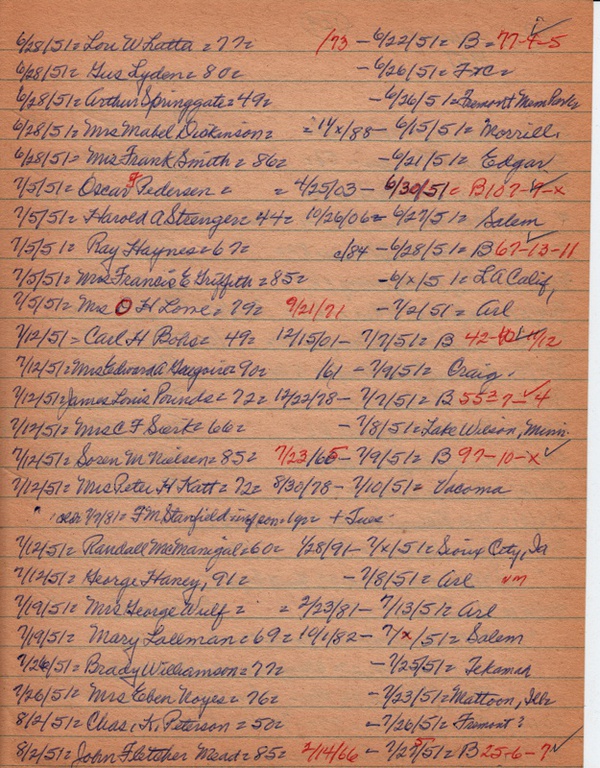 6/28/51= Lou W Latta = 77= 1/73 - 6/22/51= B = 77-7-5
6/28/51= Gus Lyden = 80= -6/26/51= F+C=
6/28/51= Arthur Springgate = 49= -6/26/51= Fremont Mem Park
6/28/51= Mrs Mabel Dickinson = = 1x/x/88 - 6/15/51= Morrill.
6/28/51= Mrs Frank Smith = 86= -6/21/51= Edgar
7/5/51= Oscar J Pedersen = = 4/25/03 - 6/30/51= B 107-9-x
7/5/51= Harold A Steenger = 44= 10/26/06= 6/27/51= Salem
7/5/51= Ray Haynes = 67= c/84 - 6/28/51= B 67-13-11
7/5/51= Mrs Francis E Griffith = 85= -6/x/51= LA Calif,
7/5/51= Mrs O H Lowe = 79= 9/21/71 -7/2/51= Arl
7/12/51= Carl H Bohs = 49= 12/15/01 - 7/7/51= B 42- 11/12
7/12/51= Mrs Edward A 90= /61 - 7/9/51= Craig.
7/12/51= James Louis Pounds = 72= 12/22/78 - 7/7/51= B 553-7-4
7/12/51= Mrs C F Sierk = 66= -7/8/51= Lake Wilson, Minn.
7/12/51= Soren M Nielsen = 85= 7/23/65 - 7/9/51= B 97-10-x
7/12/51= Mrs Peter H Katt = 72= 8/30/78 - 7/10/51= Vacoma
" 7/7/81= F M Stanfield inf son 1yr + Tues.
7/12/51= Randall McManigal = 60= 1/28/91 - 7/x/51= Sioux City, Ia
7/12/51= George Haney, 91= -7/8/51= Arl um
7/19/51= Mrs George Wulf = = 2/23/81 - 7/13/51= Arl
7/19/51= Mary Lallman = 69= 10/1/82 - 7/x/51= Salem
7/26/51= Brady Williamson = 77= -7/25/51= Tekamah
7/26/51= Mrs Eben Noyes = 76= -7/23/51= Mattoon, Ills
8/2/51= Chas. K. Peterson = 50= -7/26/51= Fremont?
8/2/51= John Fletcher Mead = 85= 2/14/66 - 7/25/51= B 25-6-7